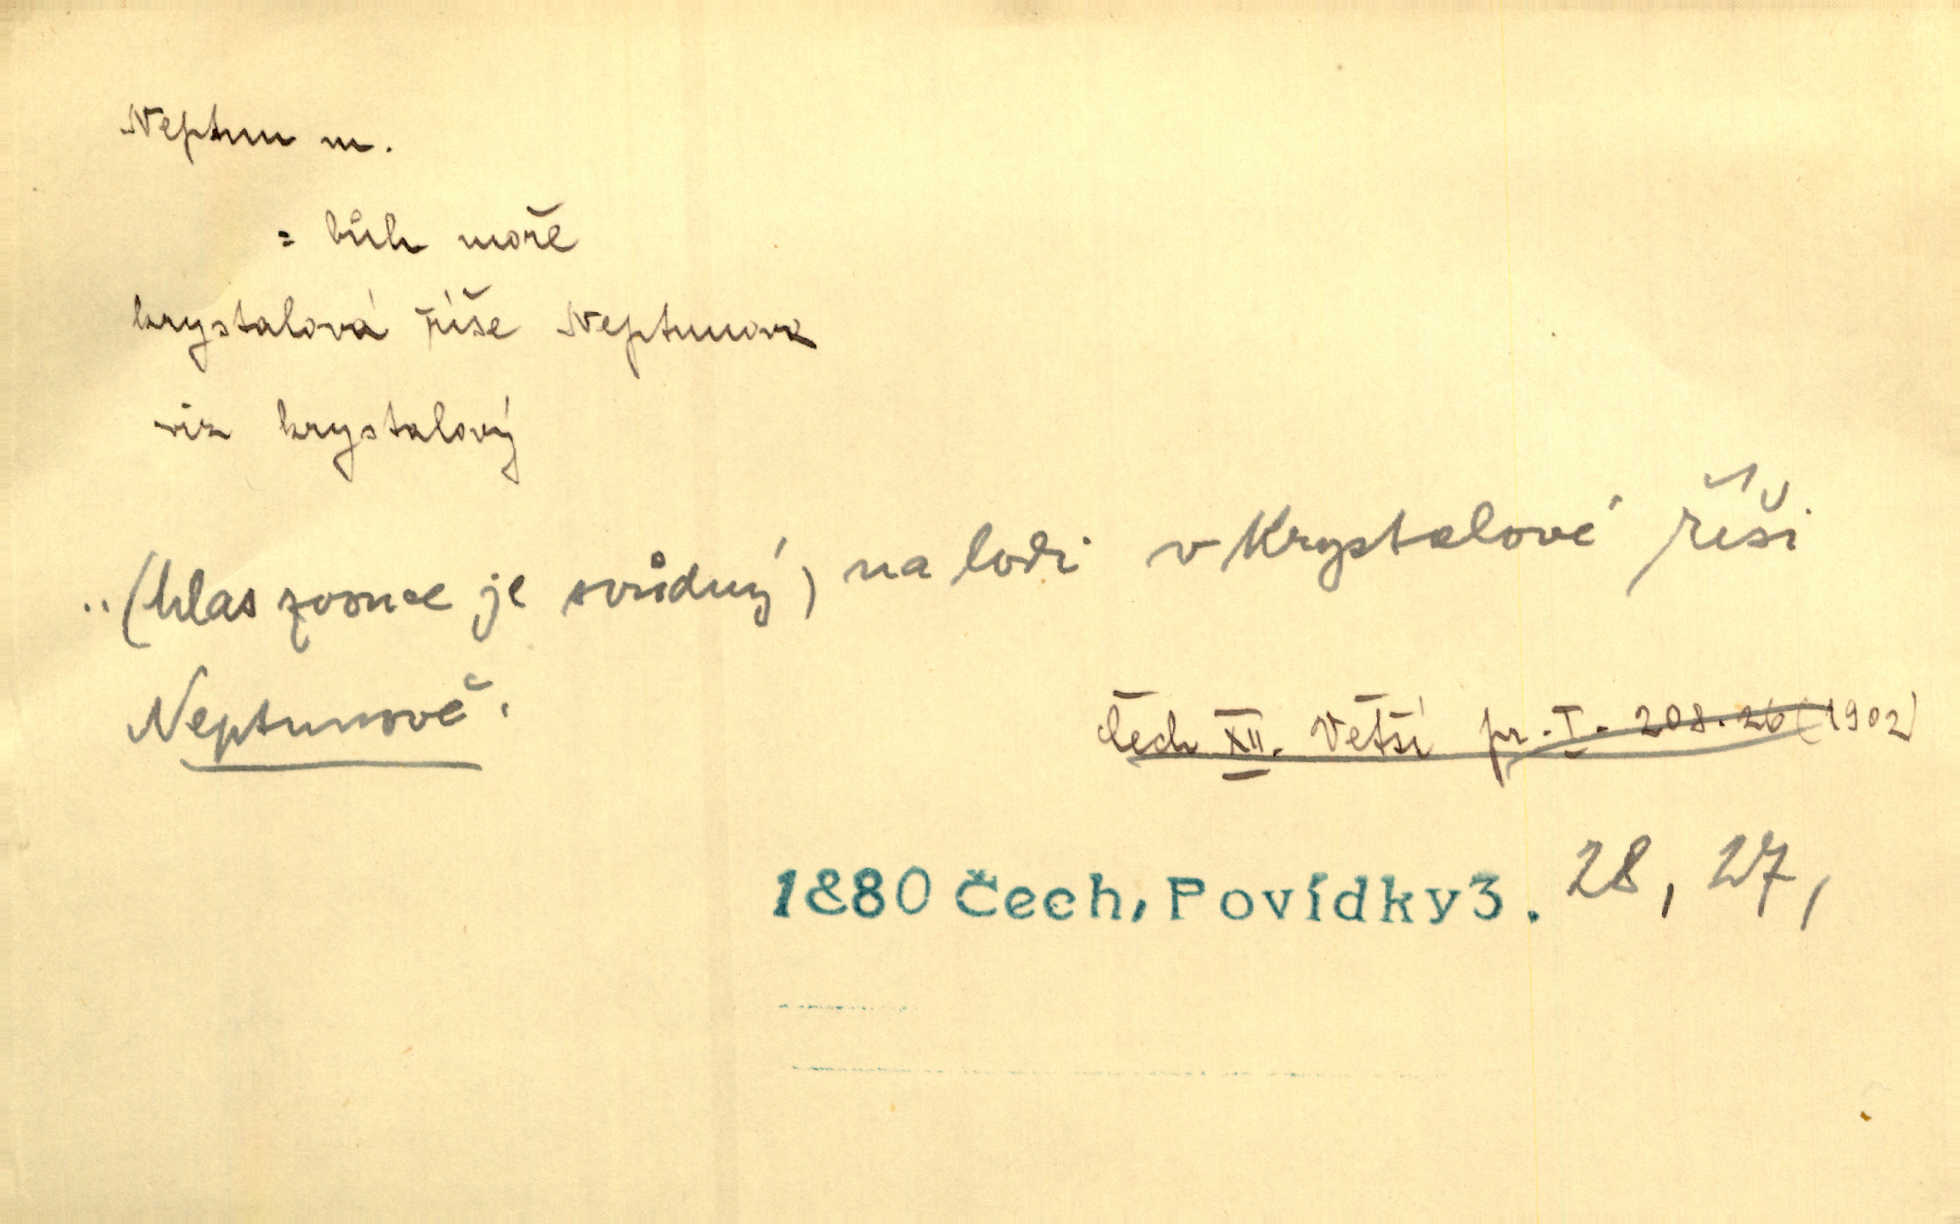 Neptun m.
= bůh moře
krystalová říše Neptunova
viz krystalový
.. (hlas zvonce je svůdný) na lodi v Krystalové říši
Neptunově.
Čech XII. Větší pr. I. 208.26 (1902)
1880 Čech, Povídky 3. 28, 27,